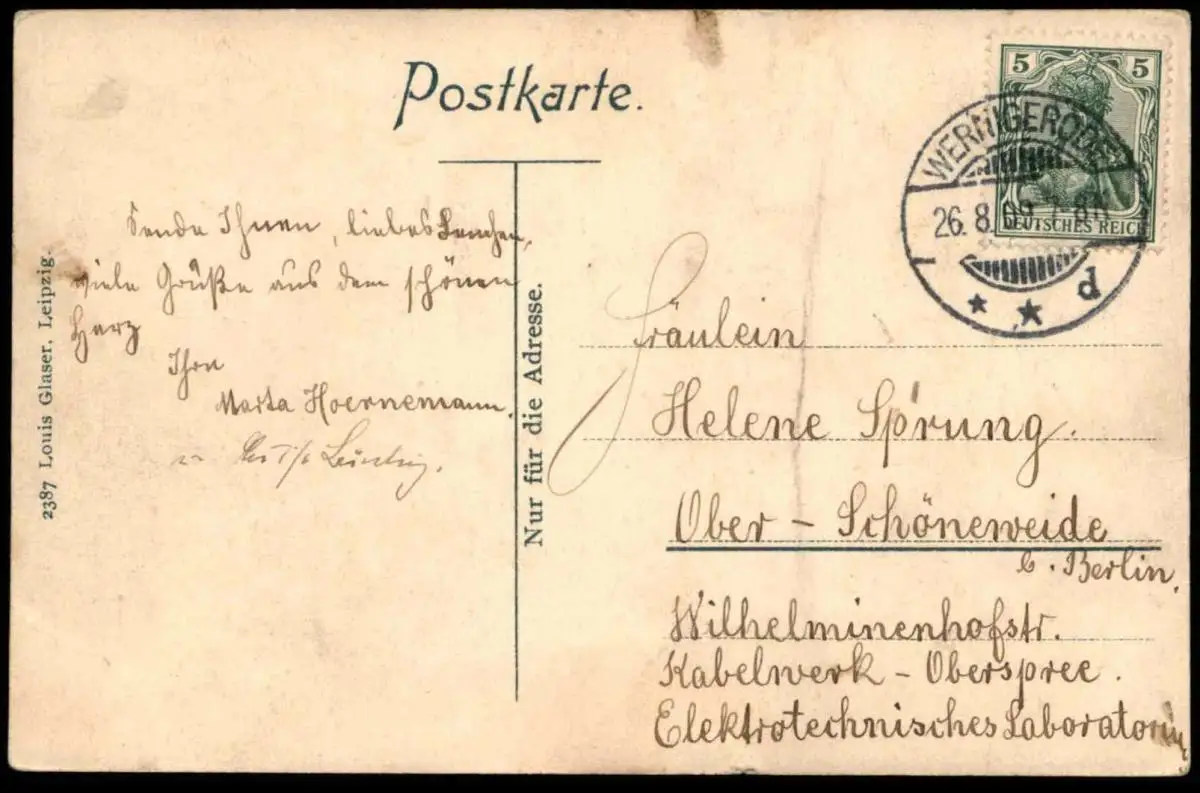 Postkarte.
5 5
DEUTSCHES REICH
WERNIGERODE
26. 8. 09. 7-8
d
Sende Ihnen, liebes Lenchen,
viele Grüße aus dem schönen
Harz
Ihre
Marta Hoernemann.
u.
2387 Louis Glaser, Leipzig.
Nur für die Adresse.
Fräulein
Helene Sprung.
Ober - Schöneweide
b. Berlin.
Wilhelminenhofstr.
Kabelwerk - Oberspree.
Elektrotechnisches Laboratorium